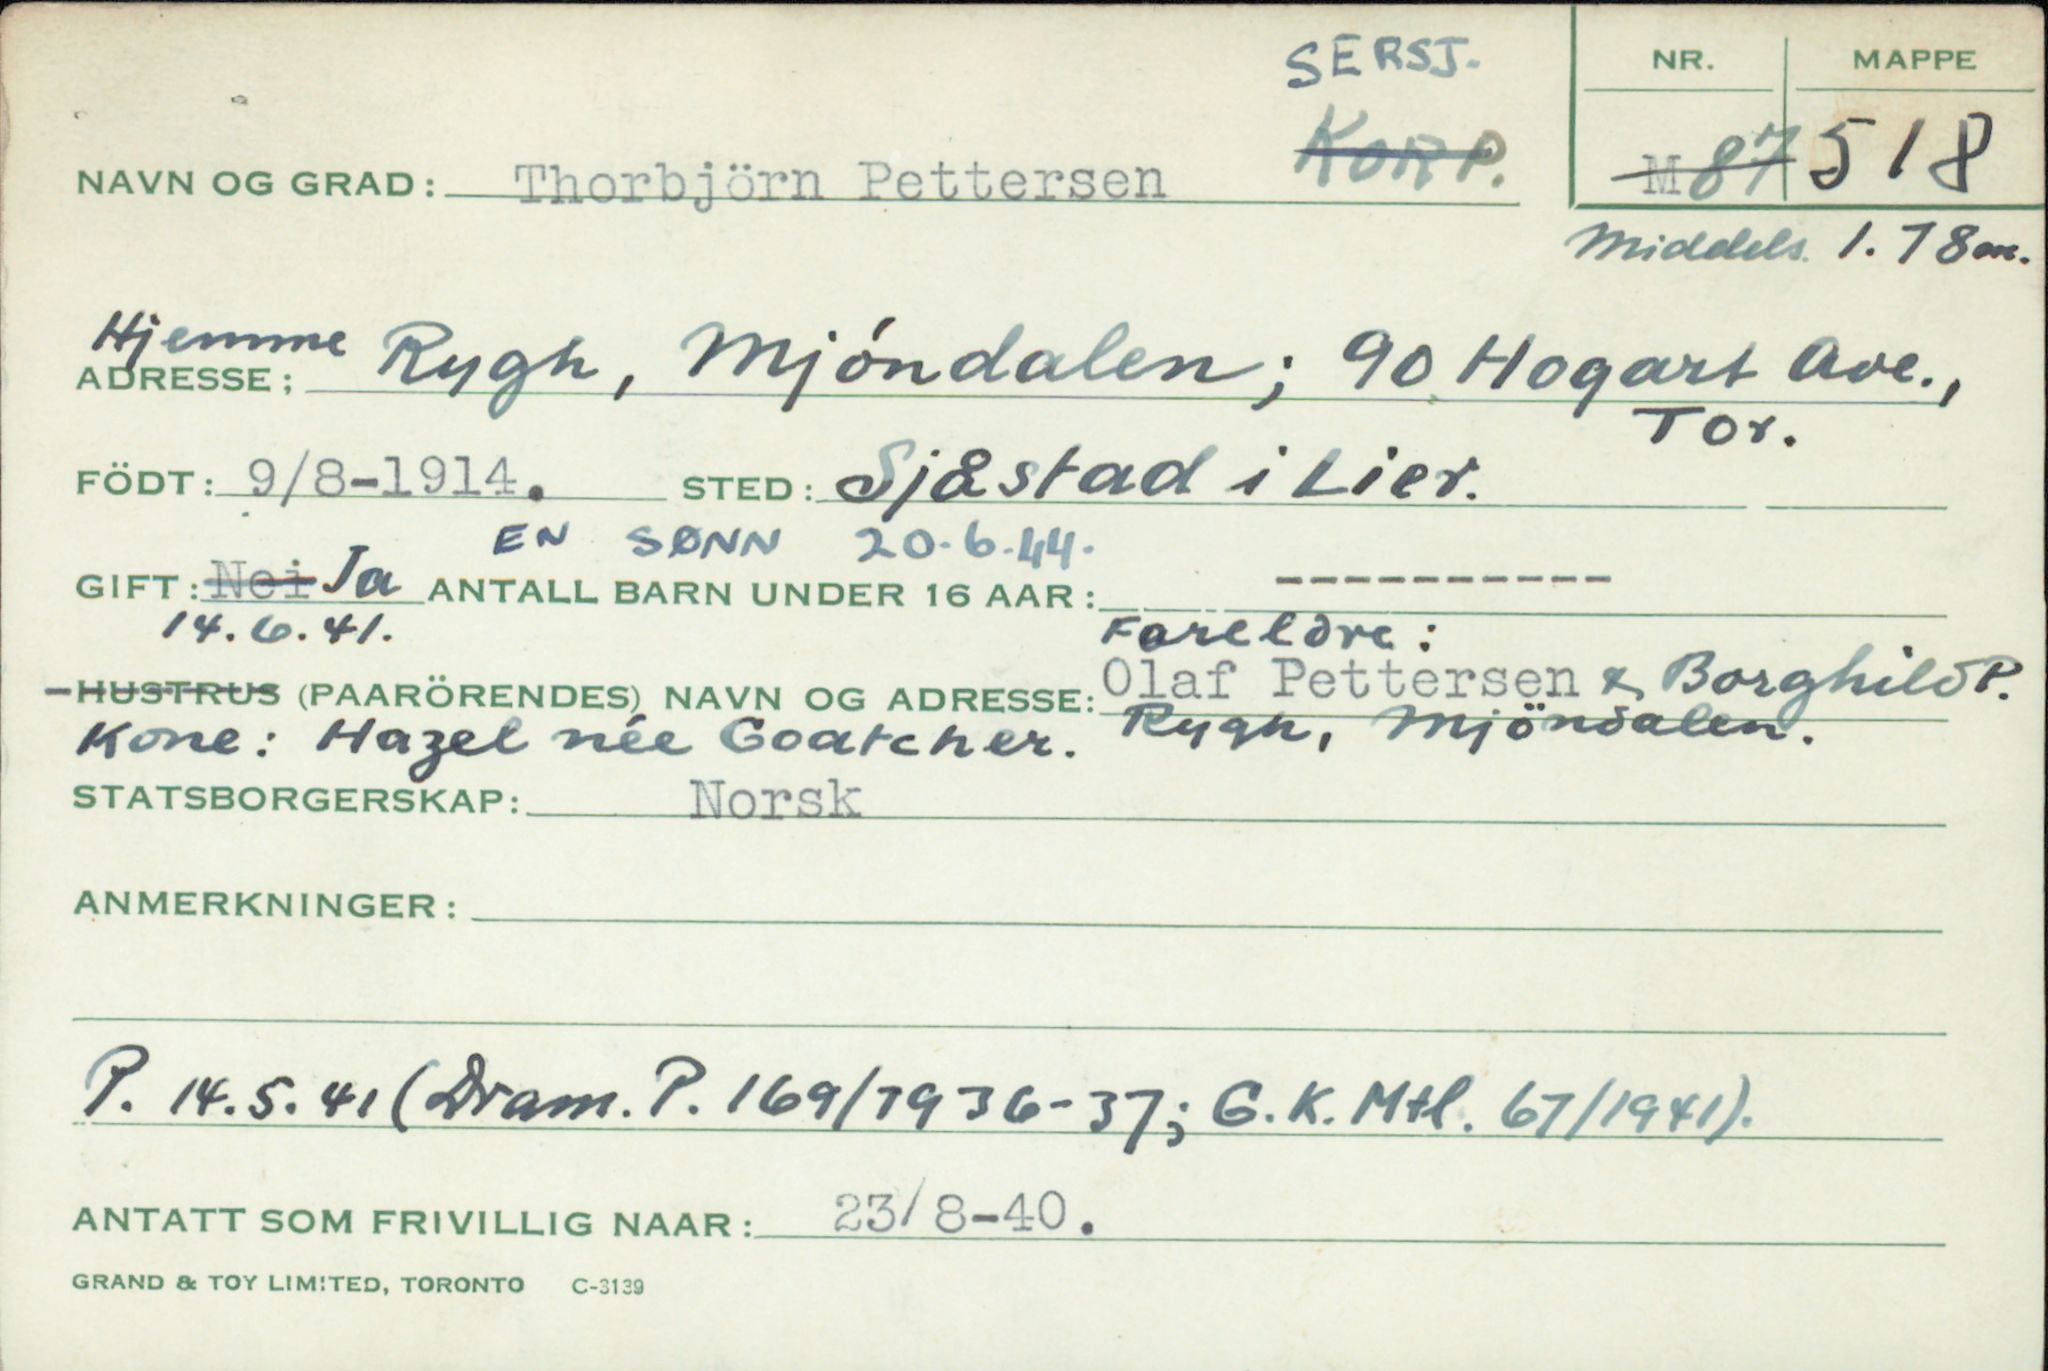 SERSJ.
NR. MAPPE
NAVN OG GRAD: Thorbjörn Pettersen KORP. M87 518
Middels. 1.78 m.
Hjemme
ADRESSE; Rygh, Mjóndalen; 90 Hogart Ave.,
Tor.
FÖDT: 9/8-1914. STED: Sjåstad i Lier.
EN SØNN 20.6.44.
GIFT: Nei Ja ANTALL BARN UNDER 16 AAR: ----------
14.6.41. Foreldre:
HUSTRUS (PAARÖRENDES) NAVN OG ADRESSE: Olaf Pettersen & Borghild P.
Kone: Hazel née Goatcher. Rygh, Mjöndalen.
STATSBORGERSKAP: Norsk
ANMERKNINGER:
P. 14.5.41 (Dram. P. 169/1936-37; G.K. Mtl. 67/1941).
ANTATT SOM FRIVILLIG NAAR: 23/8-40.
GRAND & TOY LIMITED, TORONTO C-3139